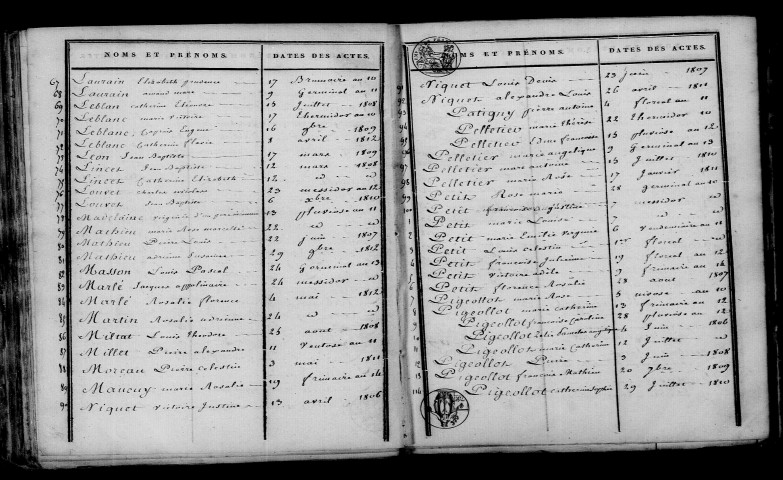 NOMS ET PRÉNOMS. DATES DES ACTES.
67 Laurain Elizabeth prudence 17 Brumaire an 10
68 Laurain 9 Germinal an 11
69 Leblan catherine Eléonore 13 Juillet 1808
70 Leblanc marie victoire 17 thermidor an 10
71 Leblanc Eugene 16 9bre 1809
72 Leblanc Catherine flavie 8 avril 1812
73 Leon Jean Baptiste 17 mars 1809
74 Lincet Jean Baptiste 12 mars 1808
75 Lincet Catherine Elizabeth 12 id id
76 Louvet charles nicolas 23 messidor an 12
77 Louvet Jean Baptiste 6 xbre 1810
78 Madelaine virginie 13 pluviose an 11
79 Mathieu marie Rose 22 id id
80 Mathieu Pierre Louis 22 Juin 1807
81 Mathieu adrien 29 9bre 1812
82 Masson Louis Pascal 24 Germinal an 13
83 Marlé Jacques appolinaire 24 messidor id
84 Marlé Rosalie florence 4 mai 1812
85 Martin Rosalie adrienne 24 id id
86 Louis theodore 25 aout 1808
87 Millet Pierre alexandre 11 ventose an 11
88 Moreau Pierre Celestin 3 mai 1811
89 marie Rosalie 19 frimaire an 14
90 Niquet victoire Justine 13 avril 1806
NOMS ET PRÉNOMS. DATES DES ACTES.
91 Niquet Louis Denis 23 Juin 1807
92 Niquet alexandre Louis 26 avril 1811
93 Patigny pierre antoine 4 floreal an 11
94 Pelletier marie thérèse 22 thermidor an 10
Pelletier Edme francois 13 pluviose an 12
Pelletier marie angelique 9 Germinal an 13
Pelletier marie 13 Juillet 1810
98 Pelletier Rose 17 Janvier 1811
99 Petit Rose marie 28 Germinal an 10
100 Petit francois 7 messidor id
1 Petit marie Louise 7 id id
2 Petit marie Emilie virginie 6 vendemiaire an 11
3 Petit Louis celestin floreal id
4 Petit francois Julien 19 floreal an 12
5 Petit victoire adile 9 frimaire an 14
6 Petit florence Rosalie 28 aout 1807
7 Pigeollot marie Rose 5 nivose an 10
8 Pigeollot marie catherine 13 frimaire an 12
9 Pigeollot francoise 28 pluviose an 12
10 Pigeollot angelique 4 Juin 1806
11 Pigeollot marie Catherine 12 Juillet id
12 Pigeollot Pierre 3 Juin 1808
13 Pigeollot francois Mathieu 20 9bre 1809
114 Pigeollot catherine 29 Juillet 1810